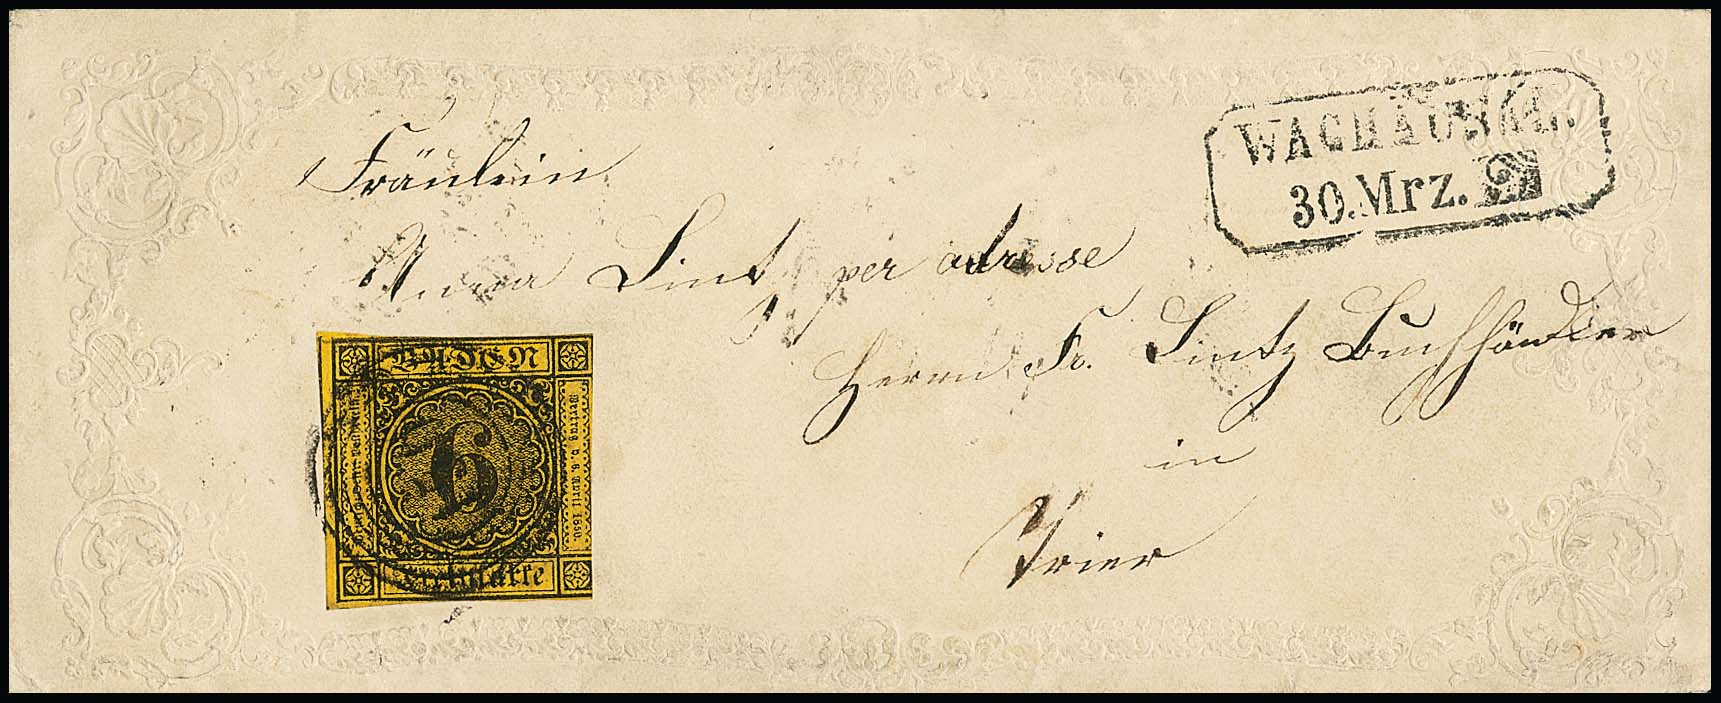 WAGHÄUSEL.
30. Mrz.
Fräulein
Anna Sintz per adresse
Herrn Fr. Sintz Buchhändler
in
Trier
BADEN
6
Freimarke
Vertrag v. 6. April 1850.